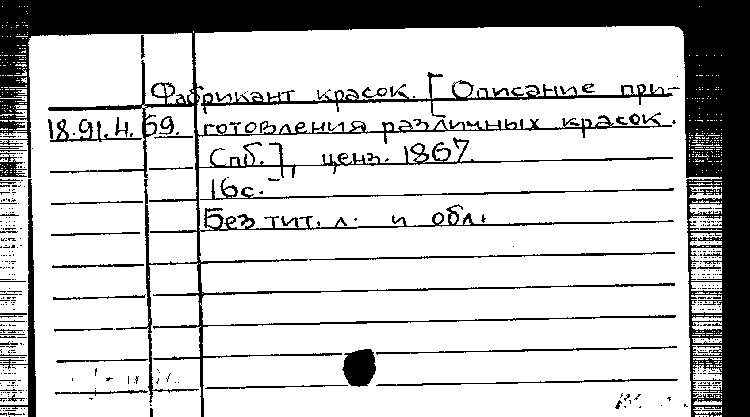 Фабрикант красок. [Описание при-
18.91.4.69. готовления различных красок.
Спб.], ценз. 1867.
16с.
Без тит. л. и обл.